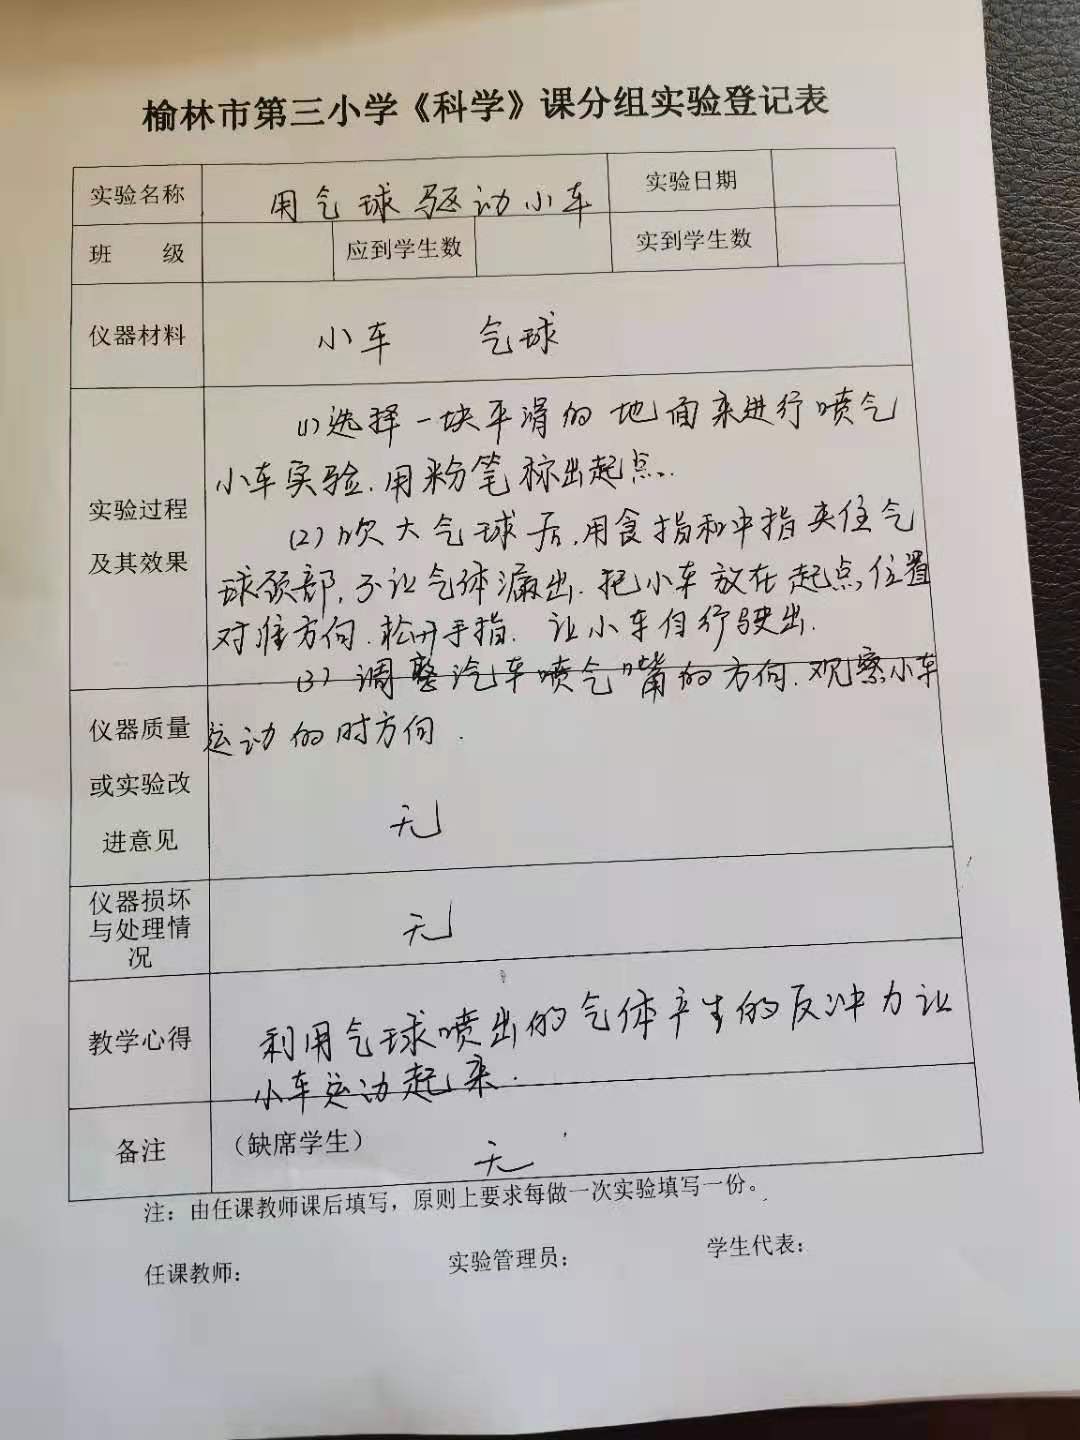 榆林市第三小学《科学》课分组实验登记表
实验名称 用气球驱动小车 实验日期
班 级 应到学生数 实到学生数
仪器材料 小车 气球
实验过程
及其效果
(1)选择一块平滑的地面来进行喷气
小车实验.用粉笔标出起点.
(2)吹大气球后,用食指和中指夹住气
球颈部,不让气体漏出.把小车放在起点位置
对准方向.松开手指.让小车自行驶出.
(3)调整汽车喷气嘴的方向.观察小车
运动的时方向.
仪器质量
或实验改
进意见
无
仪器损坏
与处理情
况
无
教学心得
利用气球喷出的气体产生的反冲力让
小车运动起来.
备注 (缺席学生)
无
注:由任课教师课后填写,原则上要求每做一次实验填写一份。
任课教师: 实验管理员: 学生代表: